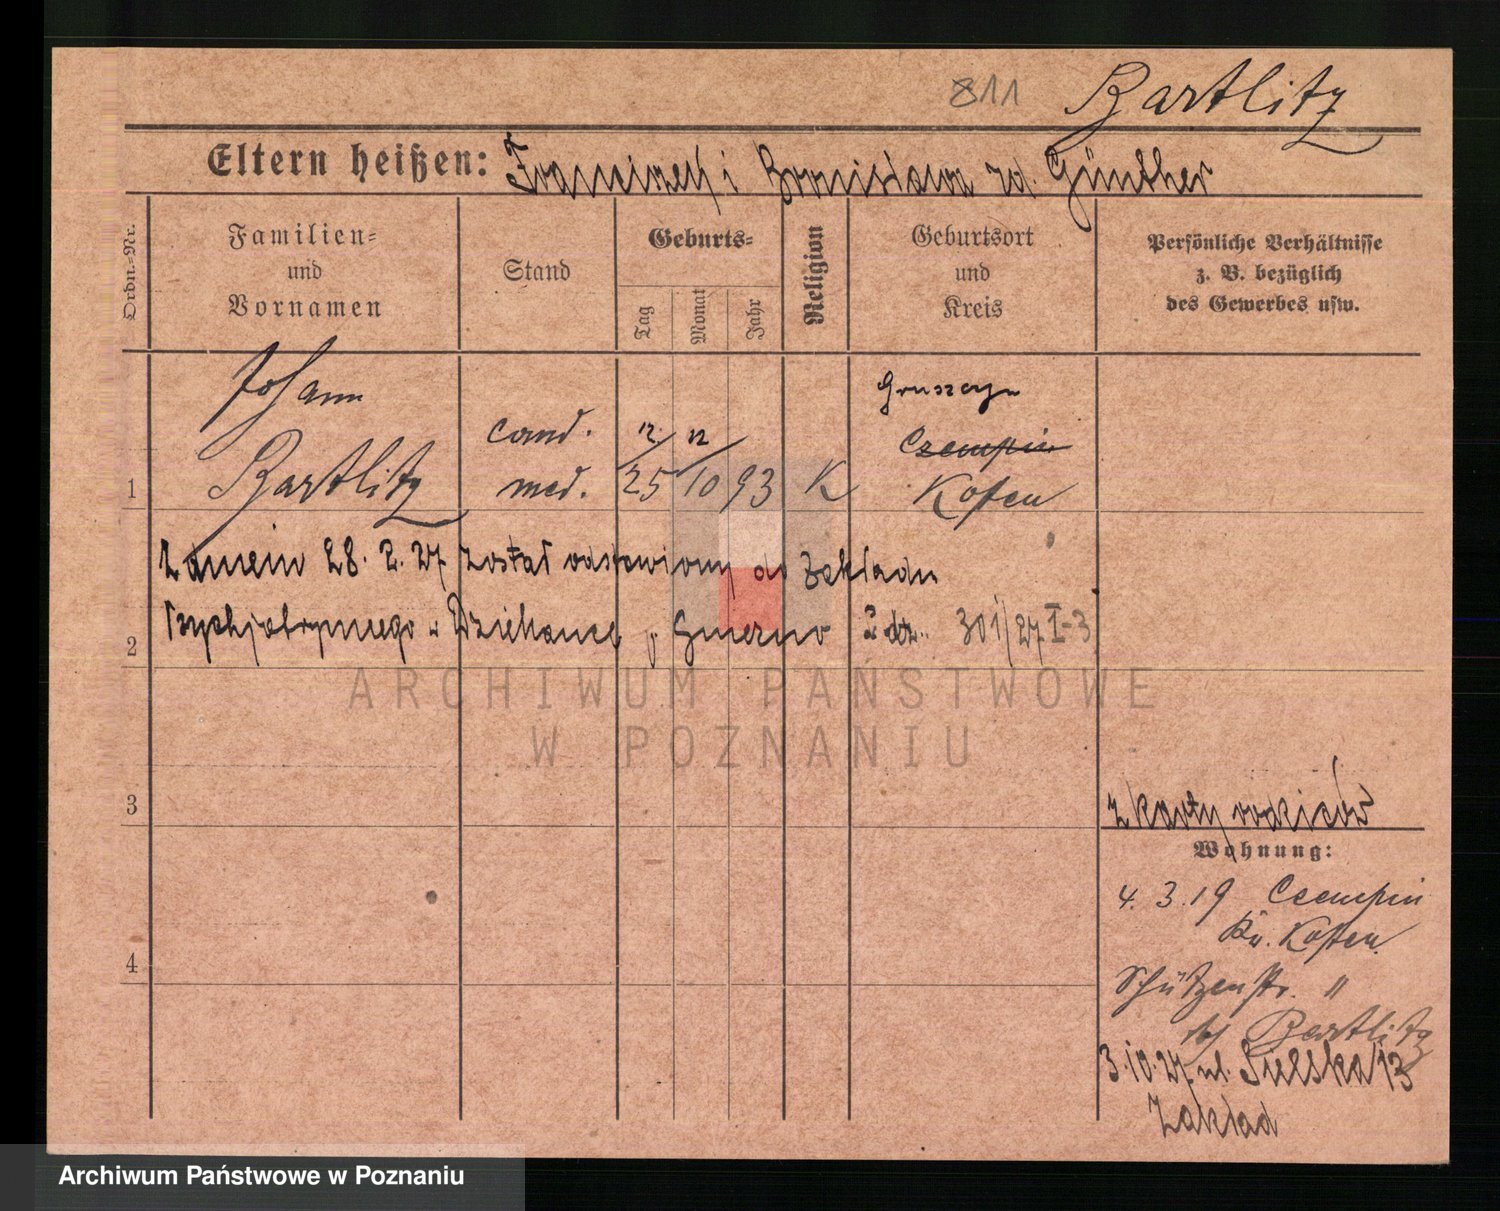 811 Bartlitz
Eltern heißen: Franciszek i Bronisława rd. Günther
Ordn.-Nr.
Familien-
und
Vornamen
Stand
Geburts-
Tag
Monat
Jahr
Religion
Geburtsort
und
Kreis
Persönliche Verhältnisse
z. B. bezüglich
des Gewerbes usw.
Johann
Bartlitz
cand.
med.
12. 12
25 10 93
K
Gruszczyn
Czempin
Kosten
1
28. 2. 27 został odstawiony do Zakładu
Psychjatrycznego w Dziekance p Gnieznо L dz. 301/27 I-3
2
3
4
ARCHIWUM PAŃSTWOWE
W POZNANIU
z karty rodziców
Wohnung:
4. 3. 19 Czempin
Kr. Kosten
Schützenstr. 11
bei Bartlitz
3.10.27 ul. Sielska 13
Zakład
Archiwum Państwowe w Poznaniu